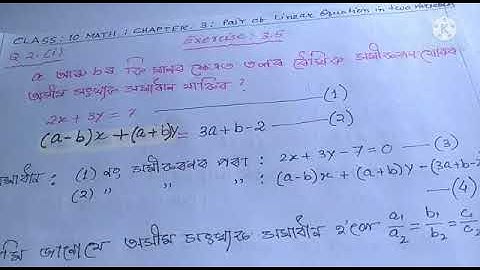 CLASS: 10 MATH ; CHAPTER. 3: Pair of Linear Equation in two variables
Exercise: 3.5
Q 2.(i)
a আৰু b ৰ কি মানৰ ক্ষেত্ৰত তলৰ ৰৈখিক সমীকৰণ যোৰৰ
অসীম সংখ্যক সমাধান থাকিব ?
2x + 3y = 7 (1)
(a-b)x + (a+b)y = 3a+b-2 (2)
সমাধান : (1) নং সমীকৰণৰ পৰা : 2x + 3y - 7 = 0 (3)
(2) " " " : (a-b)x + (a+b)y - (3a+b-2
(4)
জানো যে অসীম সংখ্যক সমাধান হ'ব a₁/a₂ = b₁/b₂ = c₁/c₂